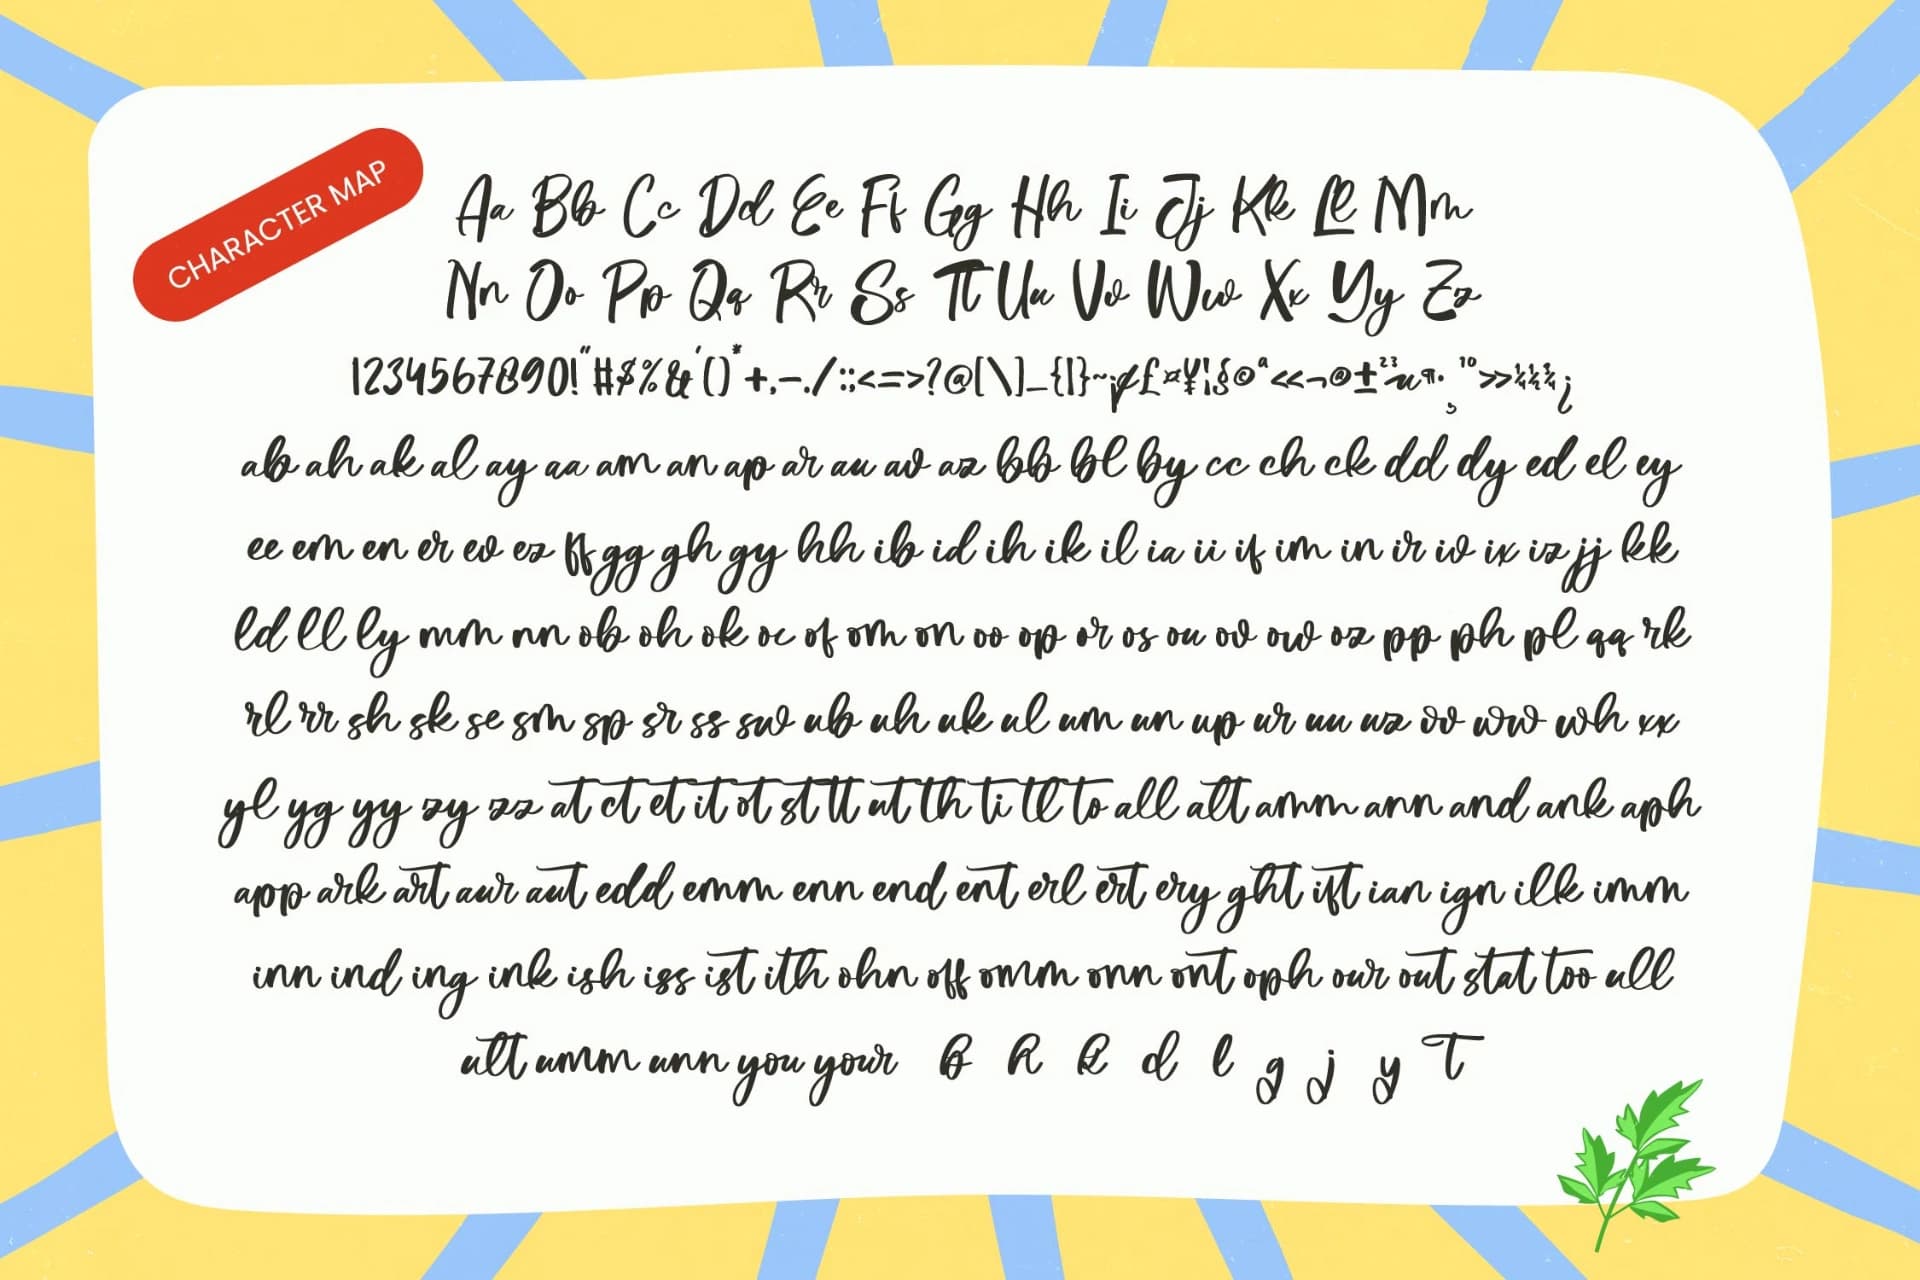 CHARACTER MAP
Aa Bb Cc Dd Ee Ff Gg Hh Ii Jj Kk Ll Mm
Nn Oo Pp Qq Rr Ss Tt Uu Vv Ww Xx Yy Zz
1234567890!"#$%&'()*+,-./:;<=>?@[\]_{|}~¡¢£¤¥¦§©ª«¬®±²³µ¶·¸¹º»¼½¾¿
ab ah ak al ay aa am an ap ar au av az bb bl by cc ch ck dd dy ed el ey
ee em en er ev ez ff gg gh gy hh ib id ih ik il ia ii if im in ir iv ix iz jj kk
ld ll ly mm nn ob oh ok oc of om on oo op or os ou ov ow oz pp ph pl qq rk
rl rr sh sk se sm sp sr ss sw ub uh uk ul um un up ur uu uz vv ww wh xx
yl yg yy zy zz at ct et it ot st tt ut th ti tl to all alt amm ann and ank aph
app ark art aur aut edd emm enn end ent erl ert ery ght ift ian ign ilk imm
inn ind ing ink ish iss ist ith ohn off omm onn ont oph our out stat too ull
ult umm unn you your b h k d l g j y t